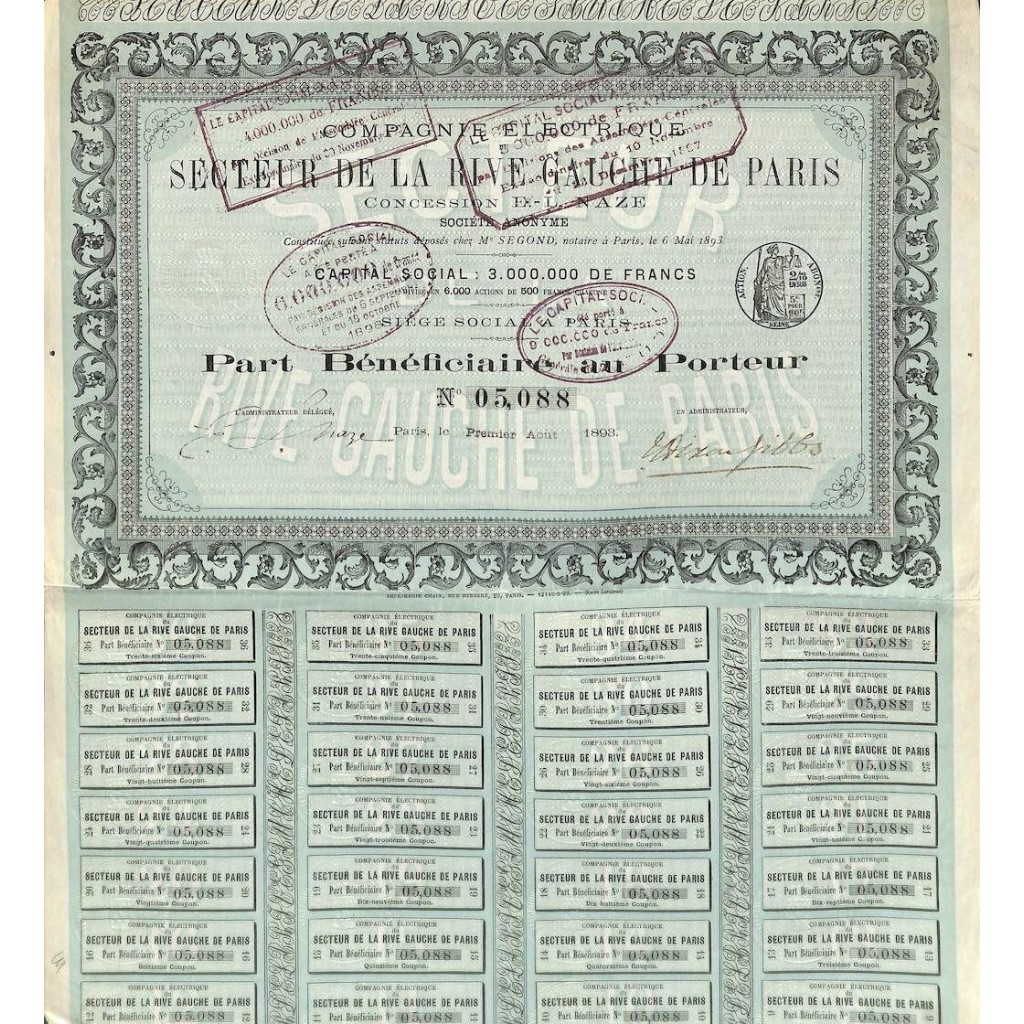 COMPAGNIE ELECTRIQUE
SECTEUR DE LA RIVE GAUCHE DE PARIS
CONCESSION E.-L. NAZE
SOCIÉTÉ ANONYME
Constituée suivant statuts déposés chez Me SEGOND, notaire à Paris, le 6 Mai 1893
CAPITAL SOCIAL : 3.000.000 DE FRANCS
DIVISÉ EN 6.000 ACTIONS DE 500 FRANCS CHACUNE
SIÈGE SOCIAL A PARIS
Part Bénéficiaire au Porteur
No 05,088
L'ADMINISTRATEUR DÉLÉGUÉ,
UN ADMINISTRATEUR,
Paris, le Premier Aout 1893.
SECTEUR
RIVE GAUCHE DE PARIS
LE CAPITAL SOCIAL
4.000.000 de FRANCS
du 30 Novembre
LE CAPITAL SOCIAL A
de FRANCS
des Assemblées Générales
du 10 Novembre
1897
LE CAPITAL SOCIAL
A ÉTÉ PORTÉ A
6.000.000
PAR DÉCISION DES ASSEMBLÉES
GÉNÉRALES DE 6 SEPTEMBRE
ET DU 16 OCTOBRE
LE CAPITAL SOCIAL
été porté à
9.000.000 de Francs
ACTION
ABONNT
2/10
EN SUS
5c
POUR
100f
SEINE
IMPRIMERIE CHAIX, RUE BERGÈRE, 20, PARIS.
COMPAGNIE ÉLECTRIQUE
du
SECTEUR DE LA RIVE GAUCHE DE PARIS
36 Part Bénéficiaire No 05,088 36
Trente-sixième Coupon.
COMPAGNIE ÉLECTRIQUE
du
SECTEUR DE LA RIVE GAUCHE DE PARIS
35 Part Bénéficiaire No 05,088 35
Trente-cinquième Coupon.
COMPAGNIE ÉLECTRIQUE
du
SECTEUR DE LA RIVE GAUCHE DE PARIS
34 Part Bénéficiaire No 05,088 34
Trente-quatrième Coupon.
COMPAGNIE ÉLECTRIQUE
du
SECTEUR DE LA RIVE GAUCHE DE PARIS
33 Part Bénéficiaire No 05,088 33
Trente-troisième Coupon.
COMPAGNIE ÉLECTRIQUE
du
SECTEUR DE LA RIVE GAUCHE DE PARIS
32 Part Bénéficiaire No 05,088 32
Trente-deuxième Coupon.
COMPAGNIE ÉLECTRIQUE
du
SECTEUR DE LA RIVE GAUCHE DE PARIS
31 Part Bénéficiaire No 05,088 31
Trente-unième Coupon.
COMPAGNIE ÉLECTRIQUE
du
SECTEUR DE LA RIVE GAUCHE DE PARIS
30 Part Bénéficiaire No 05,088 30
Trentième Coupon.
COMPAGNIE ÉLECTRIQUE
du
SECTEUR DE LA RIVE GAUCHE DE PARIS
29 Part Bénéficiaire No 05,088 29
Vingt-neuvième Coupon.
COMPAGNIE ÉLECTRIQUE
du
SECTEUR DE LA RIVE GAUCHE DE PARIS
28 Part Bénéficiaire No 05,088 28
Vingt-huitième Coupon.
COMPAGNIE ÉLECTRIQUE
du
SECTEUR DE LA RIVE GAUCHE DE PARIS
27 Part Bénéficiaire No 05,088 27
Vingt-septième Coupon.
COMPAGNIE ÉLECTRIQUE
du
SECTEUR DE LA RIVE GAUCHE DE PARIS
26 Part Bénéficiaire No 05,088 26
Vingt-sixième Coupon.
COMPAGNIE ÉLECTRIQUE
du
SECTEUR DE LA RIVE GAUCHE DE PARIS
25 Part Bénéficiaire No 05,088 25
Vingt-cinquième Coupon.
COMPAGNIE ÉLECTRIQUE
du
SECTEUR DE LA RIVE GAUCHE DE PARIS
24 Part Bénéficiaire No 05,088 24
Vingt-quatrième Coupon.
COMPAGNIE ÉLECTRIQUE
du
SECTEUR DE LA RIVE GAUCHE DE PARIS
23 Part Bénéficiaire No 05,088 23
Vingt-troisième Coupon.
COMPAGNIE ÉLECTRIQUE
du
SECTEUR DE LA RIVE GAUCHE DE PARIS
22 Part Bénéficiaire No 05,088 22
Vingt-deuxième Coupon.
COMPAGNIE ÉLECTRIQUE
du
SECTEUR DE LA RIVE GAUCHE DE PARIS
21 Part Bénéficiaire No 05,088 21
Vingt-unième Coupon.
COMPAGNIE ÉLECTRIQUE
du
SECTEUR DE LA RIVE GAUCHE DE PARIS
20 Part Bénéficiaire No 05,088 20
Vingtième Coupon.
COMPAGNIE ÉLECTRIQUE
du
SECTEUR DE LA RIVE GAUCHE DE PARIS
19 Part Bénéficiaire No 05,088 19
Dix-neuvième Coupon.
COMPAGNIE ÉLECTRIQUE
du
SECTEUR DE LA RIVE GAUCHE DE PARIS
18 Part Bénéficiaire No 05,088 18
Dix-huitième Coupon.
COMPAGNIE ÉLECTRIQUE
du
SECTEUR DE LA RIVE GAUCHE DE PARIS
17 Part Bénéficiaire No 05,088 17
Dix-septième Coupon.
COMPAGNIE ÉLECTRIQUE
du
SECTEUR DE LA RIVE GAUCHE DE PARIS
16 Part Bénéficiaire No 05,088 16
Seizième Coupon.
COMPAGNIE ÉLECTRIQUE
du
SECTEUR DE LA RIVE GAUCHE DE PARIS
15 Part Bénéficiaire No 05,088 15
Quinzième Coupon.
COMPAGNIE ÉLECTRIQUE
du
SECTEUR DE LA RIVE GAUCHE DE PARIS
14 Part Bénéficiaire No 05,088 14
Quatorzième Coupon.
COMPAGNIE ÉLECTRIQUE
du
SECTEUR DE LA RIVE GAUCHE DE PARIS
13 Part Bénéficiaire No 05,088 13
Treizième Coupon.
COMPAGNIE ÉLECTRIQUE
du
SECTEUR DE LA RIVE GAUCHE DE PARIS
12 Part Bénéficiaire No 05,088 12
COMPAGNIE ÉLECTRIQUE
du
SECTEUR DE LA RIVE GAUCHE DE PARIS
11 Part Bénéficiaire No 05,088 11
COMPAGNIE ÉLECTRIQUE
du
SECTEUR DE LA RIVE GAUCHE DE PARIS
10 Part Bénéficiaire No 05,088 10
COMPAGNIE ÉLECTRIQUE
du
SECTEUR DE LA RIVE GAUCHE DE PARIS
9 Part Bénéficiaire No 05,088 9